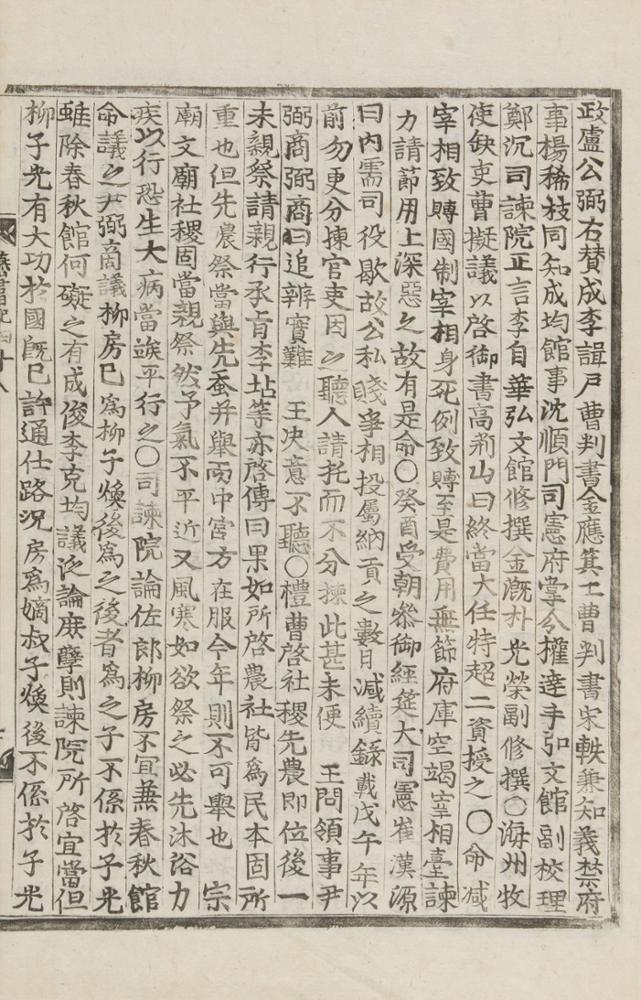 政盧公弼右賛成李諿戶曹判書金應箕工曹判書宋軼兼知義禁府
事楊稀枝同知成均館事沈順門司憲府掌令權達手弘文館副校理
鄭沉司諫院正言李自華弘文館修撰金漑朴光榮副修撰〇海州牧
使缺吏曹擬議以啓御書高荊山曰終當大任特超二資授之〇命减
宰相致賻國制宰相身死例致賻至是費用無節府庫空竭宰相臺諫
力請節用上深惡之故有是命〇癸酉受朝叅御經筵大司憲崔漢源
曰內需司役歇故公私賤爭相投屬納貢之數目减續錄載戊午年以
前勿更分揀官吏因之聽人請托而不分揀此甚未便 王問領事尹
弼商弼商曰追辨實難 王决意不聽〇禮曹啓社稷先農即位後一
未親祭請親行承旨李坫等亦啓傳曰果如所啓農社皆爲民本固所
重也但先農祭當與先蚕并舉而中宮方在服今年則不可舉也 宗
廟文廟社稷固當親祭然予氣不平近又風寒如欲祭之必先沐浴力
疾以行恐生大病當竢平行之〇司諫院論佐郞柳房不宜兼春秋館
命議之尹弼商議柳房已爲柳子煥後爲之後者爲之子不係於子光
雖除春秋館何礙之有成俊李克均議泛論庶孽則諫院所啓宜當但
柳子光有大功於國旣已許通仕路況房爲嫡叔子煥後不係於子光